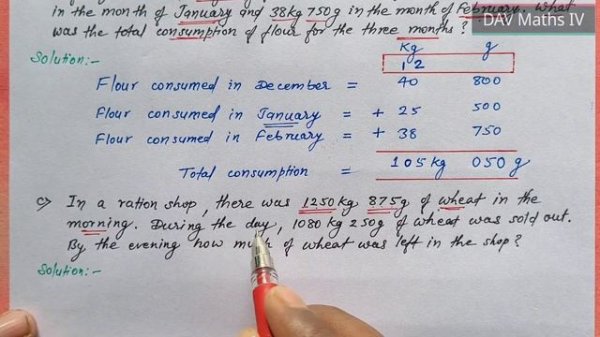 DAV Maths IV
in the month of January and 38kg 750g in the month of February. What
was the total consumption of flour for the three months?
Solution:-
Kg g
1 2
Flour consumed in December = 40 800
Flour consumed in January = + 25 500
Flour consumed in February = + 38 750
Total consumption = 105 kg 050 g
c) In a ration shop, there was 1250 kg 875g of wheat in the
morning. During the day, 1080 kg 250g of wheat was sold out.
By the evening how much of wheat was left in the shop?
Solution:-